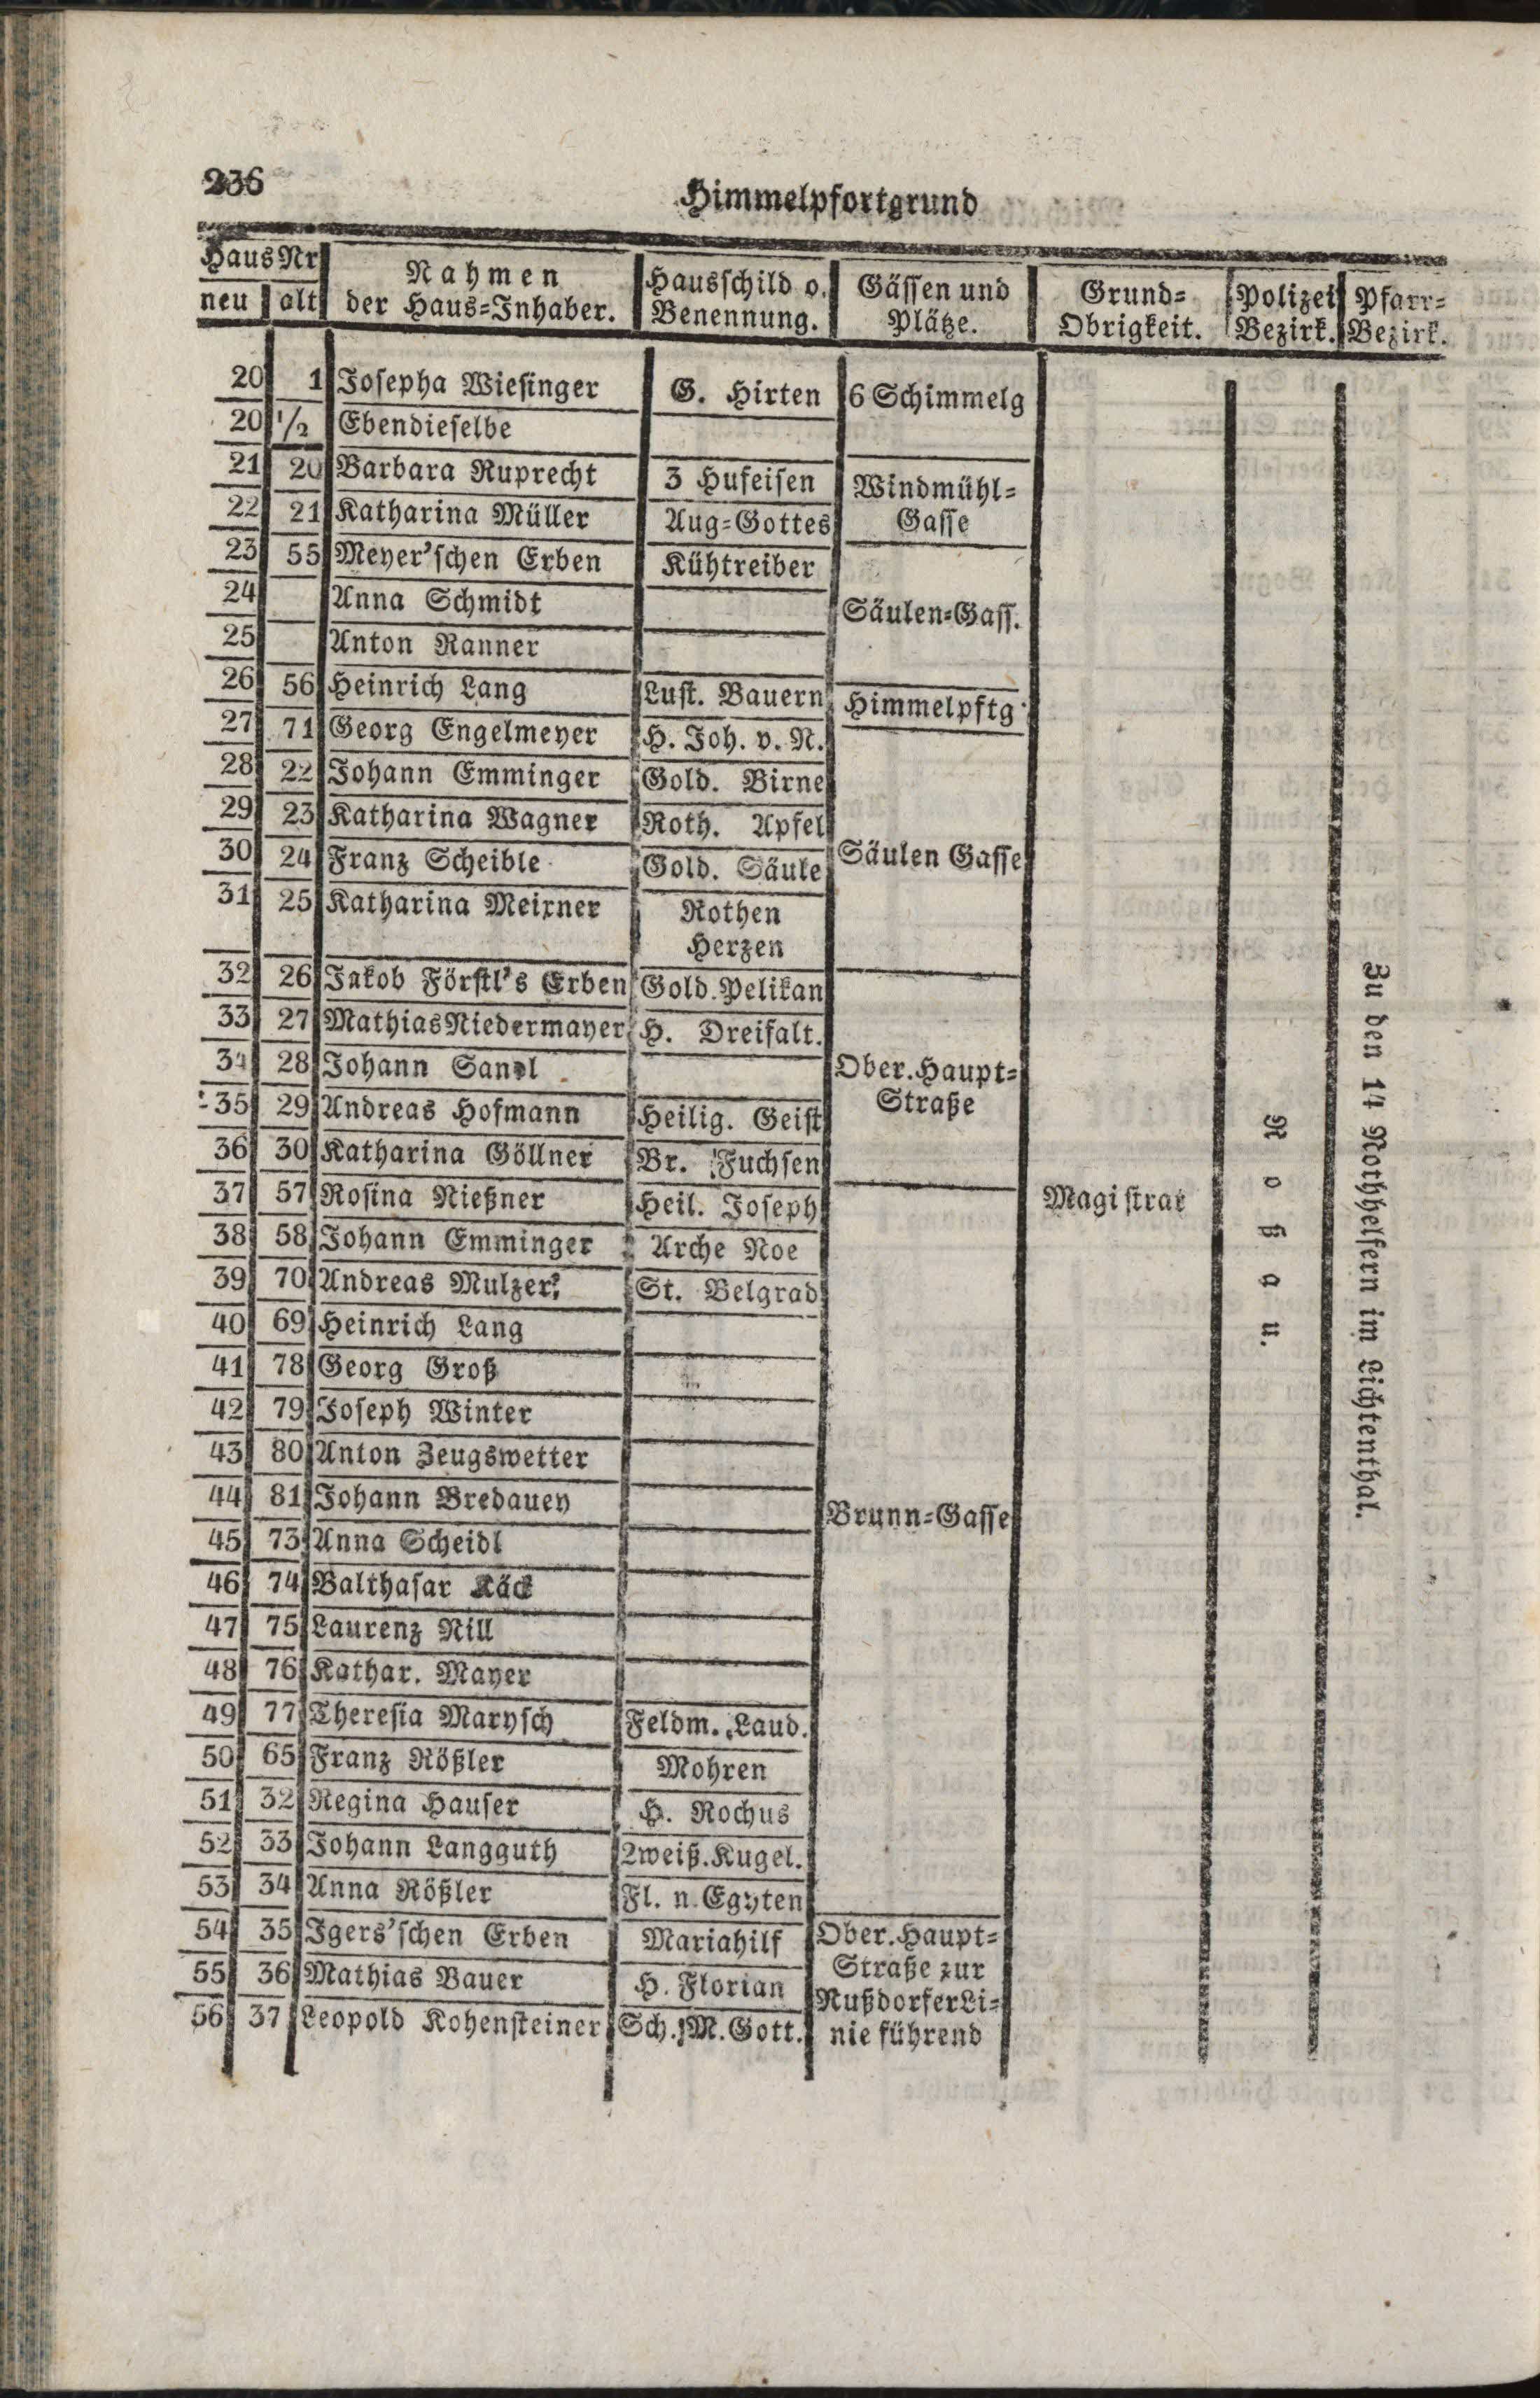 236
Himmelpfortgrund
Haus Nr
neu alt
Nahmen
der Haus=Inhaber.
Hausschild o.
Benennung.
Gässen und
Plätze.
Grund=
Obrigkeit.
Polizei
Bezirk.
Pfarr=
Bezirk.
20 1 Josepha Wiesinger G. Hirten 6 Schimmelg
20 1/2 Ebendieselbe
21 20 Barbara Ruprecht 3 Hufeisen Windmühl=
22 21 Katharina Müller Aug=Gottes Gasse
23 55 Meyer'schen Erben Kühtreiber
24 Anna Schmidt Säulen=Gass.
25 Anton Ranner
26 56 Heinrich Lang Lust. Bauern Himmelpftg
27 71 Georg Engelmeyer H. Joh. v. N.
28 22 Johann Emminger Gold. Birne
29 23 Katharina Wagner Roth. Apfel
30 24 Franz Scheible Gold. Säule Säulen Gasse
31 25 Katharina Meixner Rothen
Herzen
32 26 Jakob Förstl's Erben Gold. Pelikan
33 27 Mathias Niedermayer H. Dreifalt.
34 28 Johann Sandl Ober. Haupt=
35 29 Andreas Hofmann Heilig. Geist Straße
36 30 Katharina Göllner Br. Fuchsen
37 57 Rosina Nießner Heil. Joseph Magistrat
38 58 Johann Emminger Arche Noe
39 70 Andreas Mulzer St. Belgrad
40 69 Heinrich Lang
41 78 Georg Groß
42 79 Joseph Winter
43 80 Anton Zeugswetter
44 81 Johann Bredauey Brunn=Gasse
45 73 Anna Scheidl
46 74 Balthasar
47 75 Laurenz Nill
48 76 Kathar. Mayer
49 77 Theresia Marysch Feldm. Laud.
50 65 Franz Rößler Mohren
51 32 Regina Hauser H. Rochus
52 33 Johann Langguth 2 weiß. Kugel.
53 34 Anna Rößler Fl. n. Egyten
54 35 Igers'schen Erben Mariahilf Ober. Haupt=
55 36 Mathias Bauer H. Florian Straße zur
Nußdorfer Li=
56 37 Leopold Kohensteiner Sch. M. Gott. nie führend
Roßau.
Zu den 14 Nothhelfern im Lichtenthal.